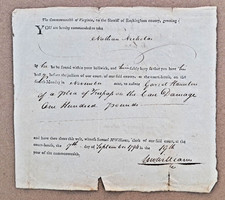 The Commonwealth of Virginia, to the Sheriff of Rockingham county, greeting:
YOU are hereby commanded to take
Nathan
if he be found within your bailiwick, and safely keep so that you have
his body before the justices of our court of our said county, at the court-house, on the
Monday in next, to answer
of a plea of Trespass on the Case Damage
One Hundred pounds
and have then there this writ, witness Samuel M'Williams, clerk of our said court, at the
court-house, the 7th day of September 1792 in the 17th
year of the commonwealth.